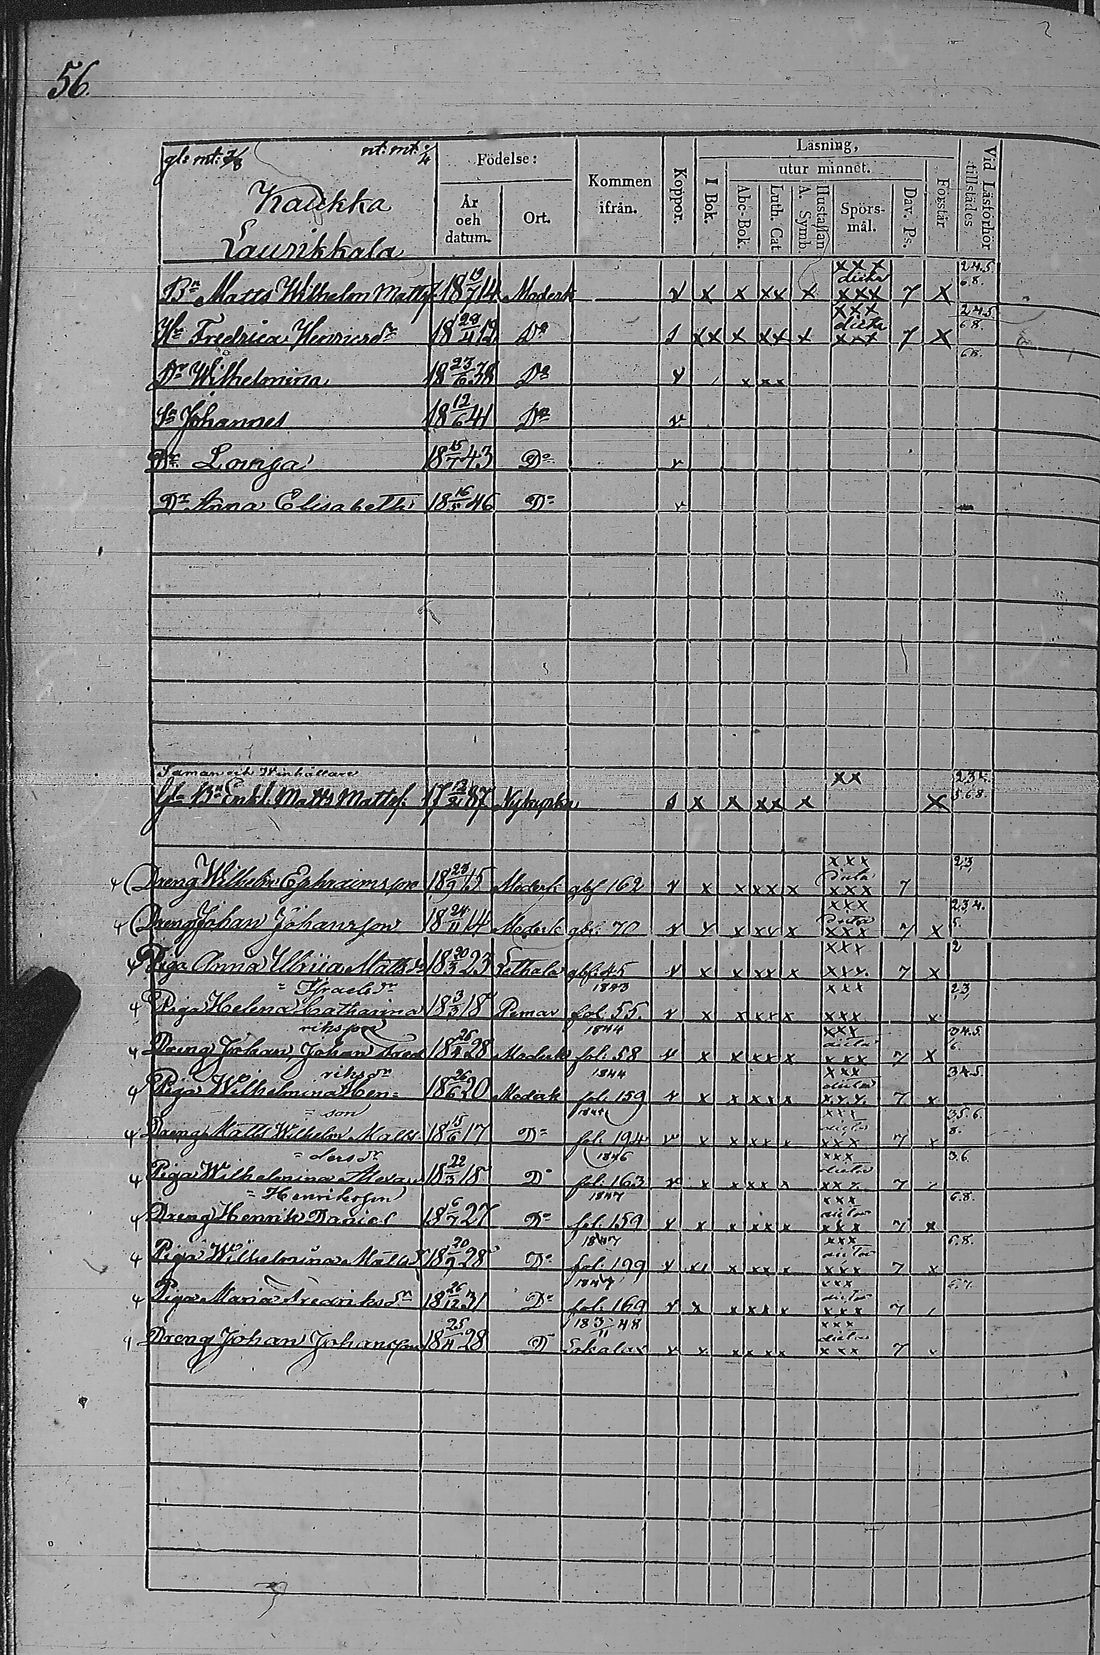 56.
gl: mt: 7/8 nt: mt: 
Födelse:
Kommen ifrån.
Koppor.
Läsning,
utur minnet.
I Bok.
Abc-Bok
Luth. Cat
A. Symb.
Hustaflan
Spörs-mål.
Dav. Ps.
Förstår
Vid Läsförhör tillstädes
År och datum.
Ort.
Kaukka
Laurikkala
Bn Matts Wilhelm Mattsf 18 19/7 14 Moderk v x x xx x xxx dicta xxx 7 x 2.4.5 6.8.
Hu Fredrica Henricsdr 18 12 Do s xx x xx x xxx dicta xxx 7 x 2.4.5 6.8.
Dr Wilhelmina 18 23/6 38 Do v x xx 6.8.
Sn Johannes 18 12/6 41 Do v
Dr Lovisa 18 15/7 43 Do v
Dr Anna Elisabeth 18 16/5 46 Do v
Gl Bn Enkl. Matts Mattsf. 17 87 Nykyrka s x x xx x xx x 2.3. 5.6.8.
Dreng Wilhelm Ephraimsson 18 23/9 15 Moderk gbf 162 v x x xx x xxx dicta xxx 7 2.3
Dreng Johan Johansson 18 24/11 14 Moderk gbf. 70 v x x xx x xxx dicta xxx 7 x 2.3.4. 5.
Piga Anna Ulrica Mattsdr 18 20/3 23 Letala gbf: 45 v x x xx x xxx xxx 7 x 2
= Israelsdr 1843
Piga Helena Catharina 18 3/3 18 Pemar fol. 55. v x x xx x xxx xxx x 2.3
riksson 1844
Dreng Johan Johan Fred 18 28 Moderk fol: 58 v x x xx x xxx dicta xxx 7 x 3.4.5 6
riksdr 1844
Piga Wilhelmina Hen= 18 26/6 20 Moderk fol: 159 v x x xx x xxx dicta xxx 7 x 3.4.5.
= son
Dreng Matts Wilhelm Matts 18 15/6 17 Do fol. 194 v x x xx x xxx dicta xxx 7 x 3.5.6. 8.
= dersdr 1846
Piga Wilhelmina Alexan 18 22/3 18 Do fol. 163 v x x xx x xxx dicta xxx 7 3.6.
= Henriksson 1847
Dreng Henrik Daniel 18 6/7 27 Do fol. 159 v x x xx x xxx dicta xxx 7 x 6.8.
1847
Piga Wilhelmina Matts 18 20/9 28 Do fol. 199 v x x xx x xxx dicta xxx 7 x 6.8.
1847
Piga Maria Fredriksdr 18 26/12 31 Do fol: 169 v x x xx x xxx dicta xxx 7 6.7.
18 3/11 48
Dreng Johan Johansson 18 25/4 28 Do v x x xx x xxx dicta xxx 7